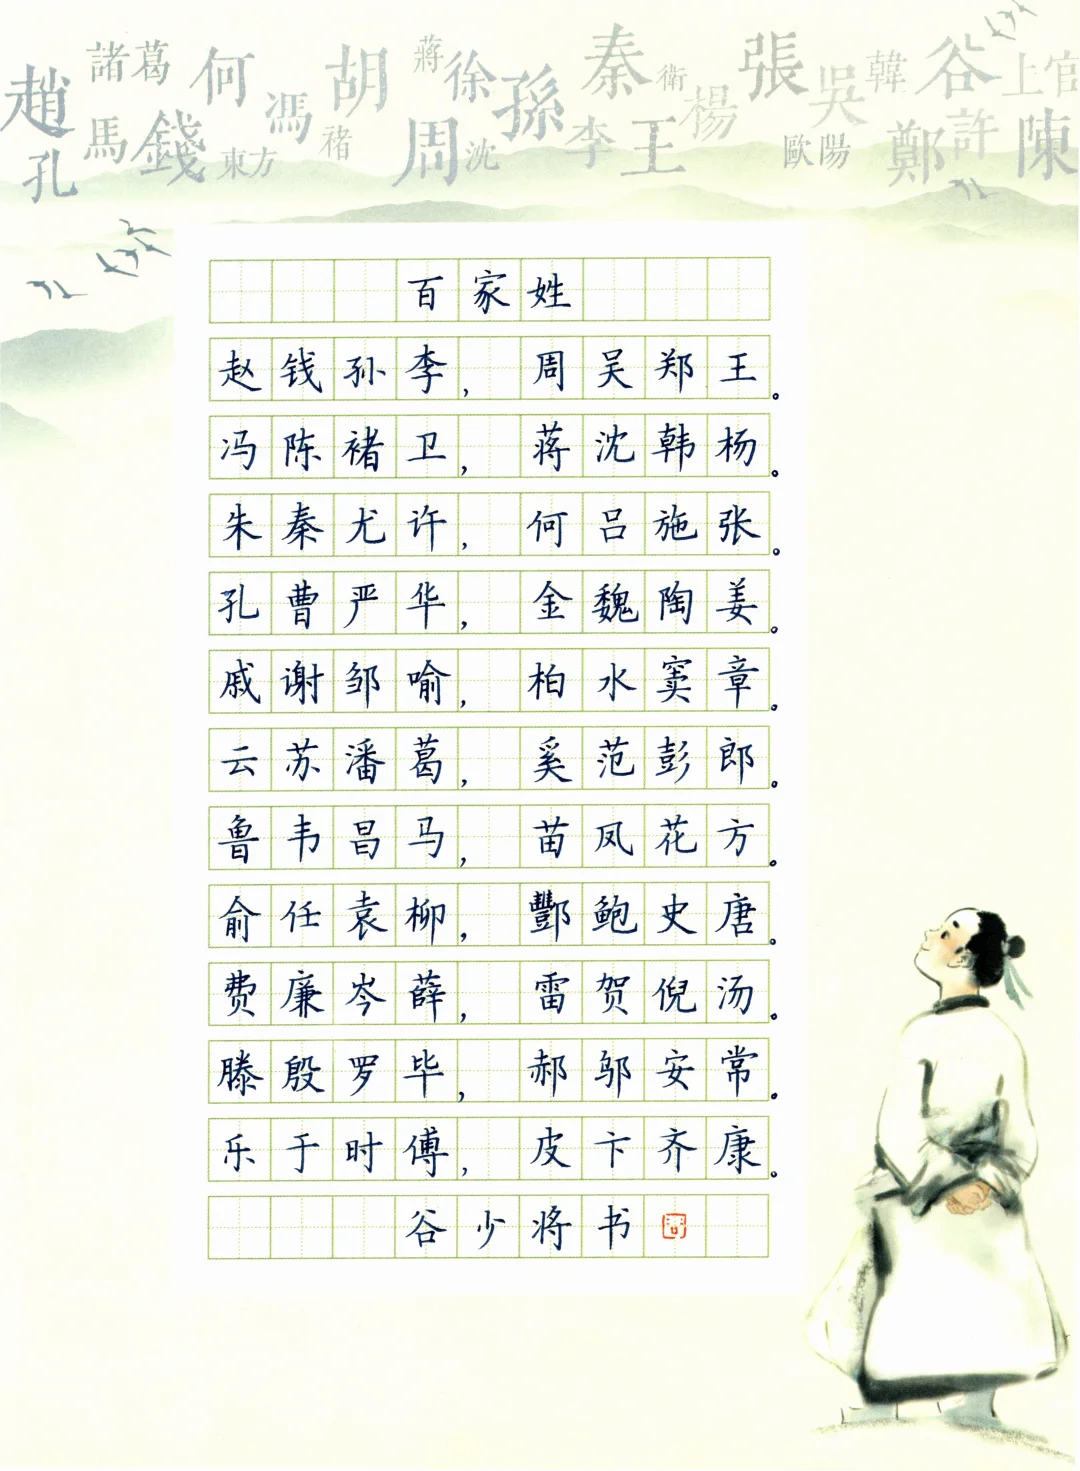 趙 諸葛 何 胡 蔣 徐 孫 秦 衛 楊 張 吳 韓 谷 上官
孔 馬 錢 東方 馮 褚 周 沈 李 王 歐陽 鄭 許 陳
百家姓
赵钱孙李，周吴郑王。
冯陈褚卫，蒋沈韩杨。
朱秦尤许，何吕施张。
孔曹严华，金魏陶姜。
戚谢邹喻，柏水窦章。
云苏潘葛，奚范彭郎。
鲁韦昌马，苗凤花方。
俞任袁柳，酆鲍史唐。
费廉岑薛，雷贺倪汤。
滕殷罗毕，郝邬安常。
乐于时傅，皮卞齐康。
谷少将书